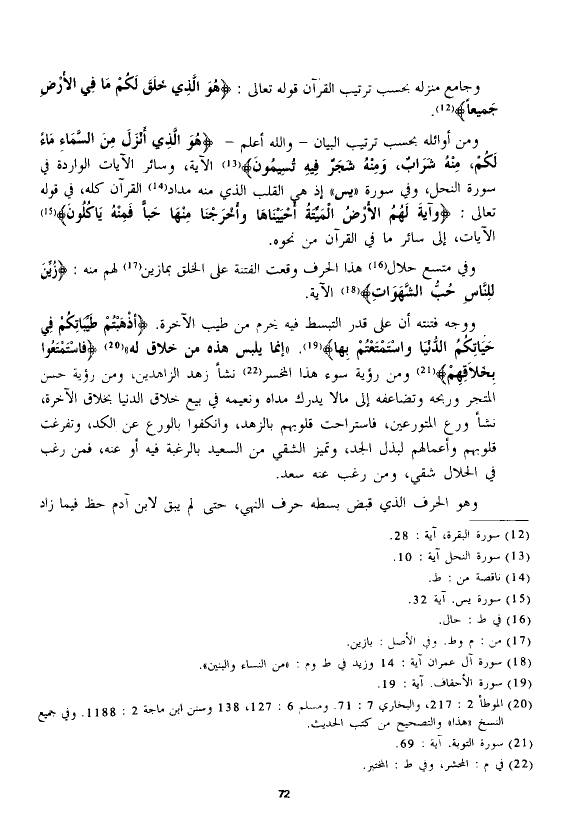 وجامع منزله بحسب ترتيب القرآن قوله تعالى : ﴿هُوَ الَّذِي خَلَقَ لَكُمْ مَا فِي الأَرْضِ
جَمِيعاً﴾(12).
ومن أوائله بحسب ترتيب البيان – والله أعلم – ﴿هُوَ الَّذِي أَنْزَلَ مِنَ السَّمَاءِ مَاءً
لَكُمْ، مِنْهُ شَرَابٌ، وَمِنْهُ شَجَرٌ فِيهِ تُسِيمُونَ﴾(13) الآية، وسائر الآيات الواردة في
سورة النحل، وفي سورة «يس» إذ هي القلب الذي منه مداد(14) القرآن كله، في قوله
تعالى : ﴿وآيةَ لَهُمُ الأَرْضُ الْمَيِّتَةُ أَحْيَيْنَاهَا وَأَخْرَجْنَا مِنْهَا حَباً فَمِنْهُ يَاكُلُونَ﴾(15)
الآيات، إلى سائر ما في القرآن من نحوه.
وفي متسع حلال(16) هذا الحرف وقعت الفتنة على الخلق بمازين(17) لهم منه : ﴿زُيِّنَ
لِلنَّاسِ حُبُّ الشَّهَوَاتِ﴾(18) الآية.
ووجه فتنته أن على قدر التبسط فيه يحرم من طيب الآخرة. ﴿أذْهَبْتُمْ طَيِّبَاتِكُمْ فِي
حَيَاتِكُمُ الدُّنْيَا وَاسْتَمْتَعْتُمْ بِهَا﴾(19). «إنما يلبس هذه من خلاق له»(20) ﴿فَاسْتَمْتَعُوا
بِخَلاَقِهِمْ﴾(21) ومن رؤية سوء هذا المخسر(22) نشأ زهد الزاهدين، ومن رؤية حسن
المتجر وربحه وتضاعفه إلى مالا يدرك مداه ونعيمه في بيع خلاق الدنيا بخلاق الآخرة،
نشأ ورع المتورعين، فاستراحت قلوبهم بالزهد، وانكفوا بالورع عن الكد، وتفرغت
قلوبهم وأعمالهم لبذل الجد، وتميز الشقي من السعيد بالرغبة فيه أو عنه، فمن رغب
في الحلال شقي، ومن رغب عنه سعد.
وهو الحرف الذي قبض بسطه حرف النهي، حتى لم يبق لابن آدم حظ فيما زاد
(12) سورة البقرة، آية : 28.
(13) سورة النحل آية : 10.
(14) ناقصة من : ط.
(15) سورة يس. آية 32.
(16) في ط : حال.
(17) من : م وط. وفي الأصل : بازين.
(18) سورة آل عمران آية : 14 وزيد في ط وم : «من النساء والبنين».
(19) سورة الأحقاف. آية : 19.
(20) الموطأ 2 : 217، والبخاري 7 : 71. ومسلم 6 : 127، 138 وسنن ابن ماجة 2 : 1188. وفي جميع
النسخ «هذا» والتصحيح من كتب الحديث.
(21) سورة التوبة. آية : 69.
(22) في م : المحشر، وفي ط : المختبر.
72